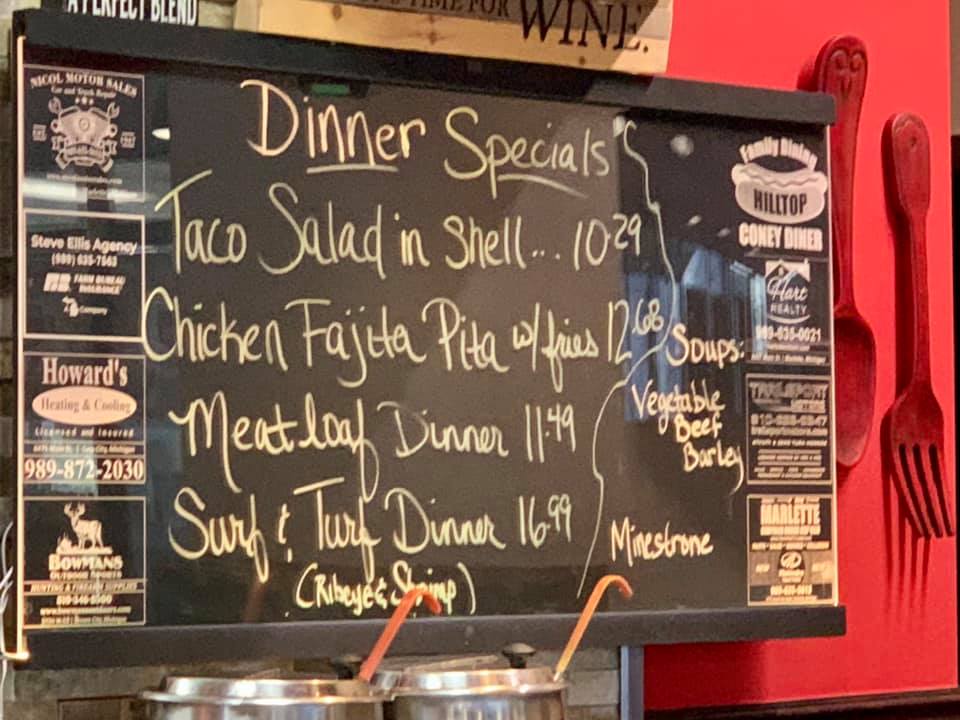 A PERFECT BLEND
TIME FOR
WINE.
NICOL MOTOR SALES
Car and Truck Repair
Steve Ellis Agency
(989) 635-7563
FARM BUREAU
INSURANCE
Company
Howard's
Heating & Cooling
Licensed and Insured
989-872-2030
BOWMANS
OUTDOOR SPORTS
HUNTING & FIREARM SUPPLIES
Dinner Specials
Taco Salad in Shell... 10.29
Chicken Fajita Pita w/fries 12.68
Meatloaf Dinner 11.49
Surf & Turf Dinner 16.99
(Ribeye & Shrimp)
Soups:
Vegetable
Beef
Barley
Minestrone
Family Dining
HILLTOP
CONEY DINER
Hart
REALTY
989-635-0021
MARLETTE